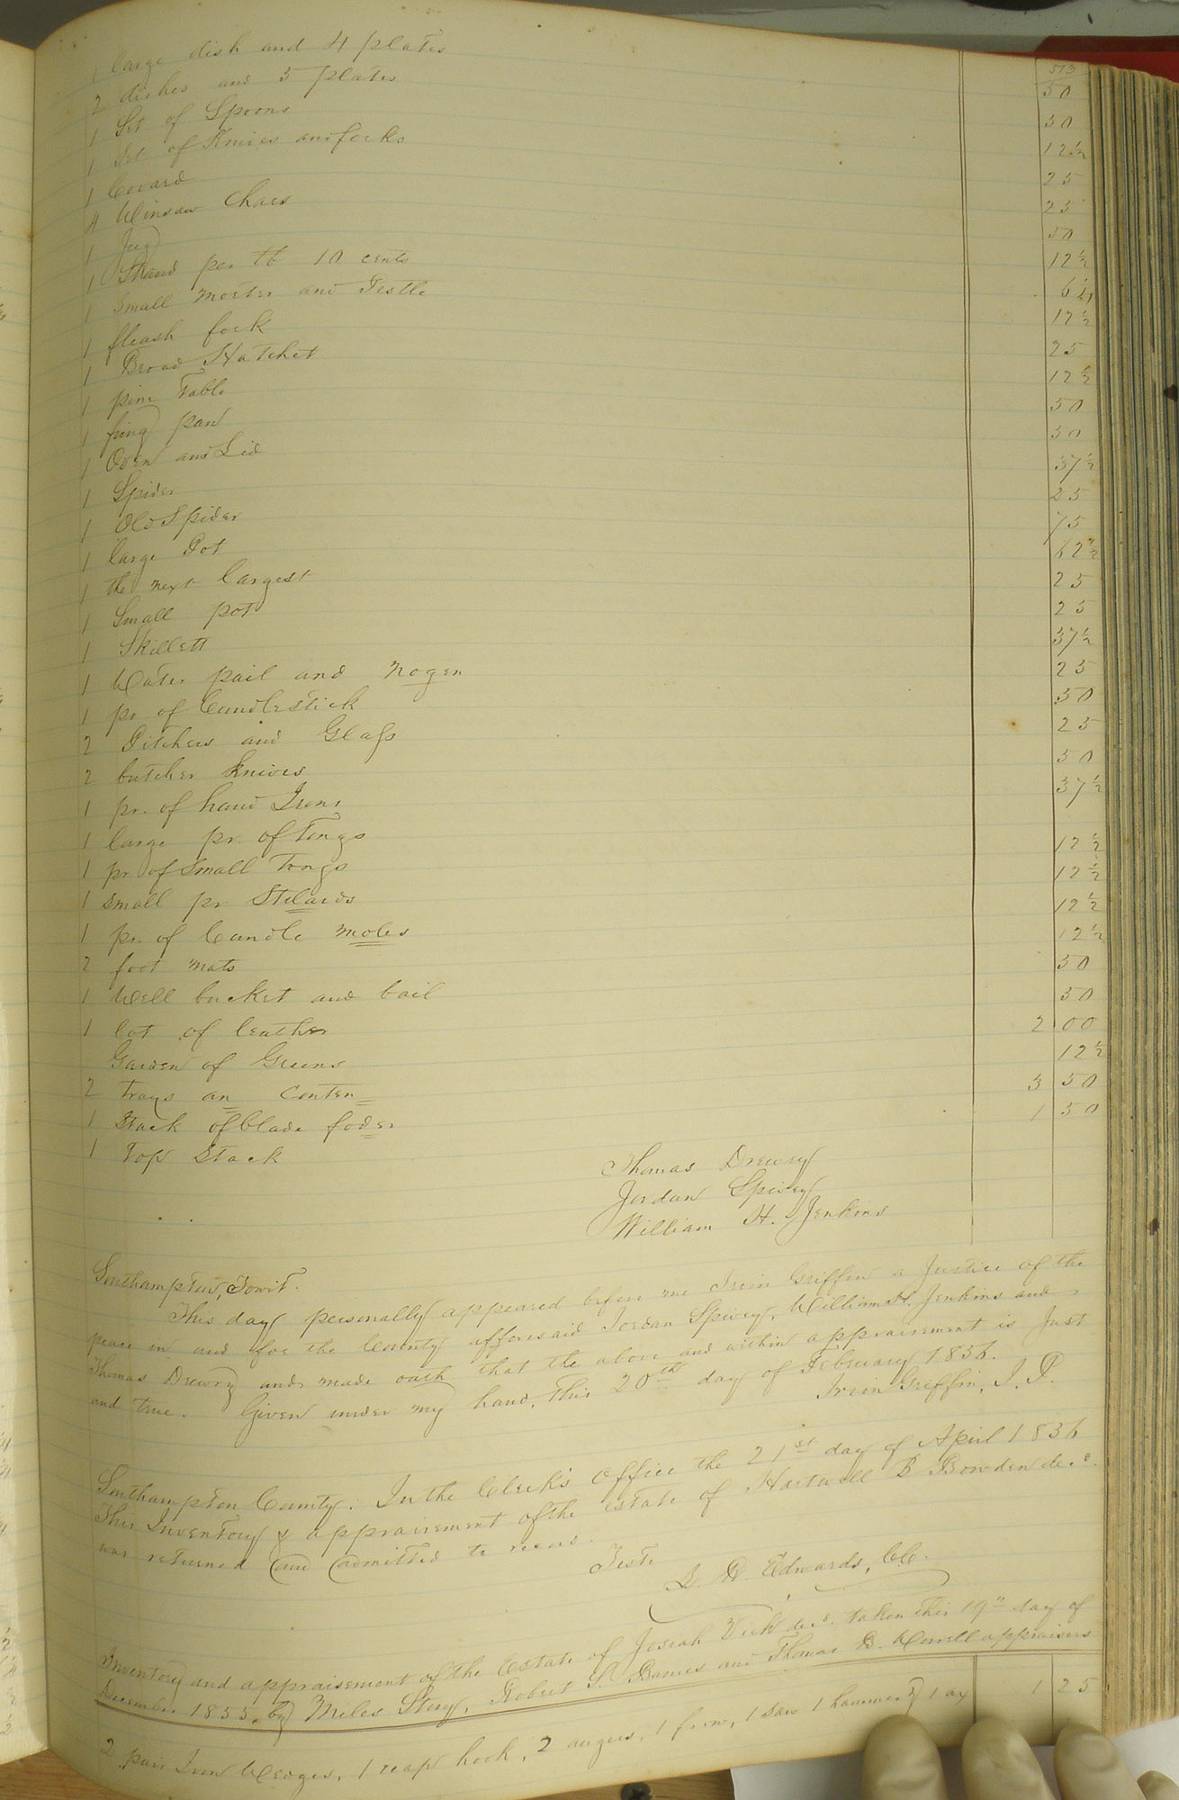 513
1 large dish and 4 plates 50
2 dishes and 5 plates 50
1 Set of Spoons 12½
1 Set of Knives and forks 25
1 Covard 25
4 Winsaw Chaes 50
1 Jug 12½
1 Stand per lb 10 cents 6¼
1 Small morter and Pestle 12½
1 fleash fork 25
1 Broad Hatchet 12½
1 pine Table 50
1 fring pan 50
1 Oven and Lid 37½
1 Spider 25
1 Old Spider 75
1 large Pot 62½
1 the next largest 25
1 Small pot 25
1 Skillett 37½
1 Water pail and nogen 25
1 pr of Candlestick 50
2 Pitchers and Glass 25
2 butcher knives 50
1 pr. of hand Irons 37½
1 large pr. of Tongs
1 pr of Small Tongs 12½
1 small pr Stilards 12½
1 pr. of Candle moles 12½
2 foot mats 12½
1 Well bucket and bail 50
1 lot of leather 50
Garden of Greens 2 00
2 trays an Conten 12½
1 Stack of blade foder 3 50
1 Top Stack 1 50
Thomas Drewry
Jordan Spivey
William H. Jenkins
Southampton, Towit.
This day personally appeared before me Irvin Griffin a Justice of the
peace in and for the County afforesaid Jordan Spivey, William H. Jenkins and
Thomas Drewry and made oath that the above and within appraisment is Just
and true. Given under my hand, this 20th day of February 1836.
Irvin Griffin, J. P.
Southampton County. In the Clerk's Office the 21st day of April 1836
This Inventory & appraisement of the estate of Hartwell B Bowden decd.
was returned and admitted to record.
Teste
L. R. Edwards, C.C.
Inventory and appraisement of the Estate of Josiah Vick decd. taken this 19th day of
December 1835. by Miles Story, Robert S. Barnes and Thomas B. Worrell appraisers
2 pair Iron Wedges, 1 reap hook, 2 augers, 1 frow, 1 saw 1 hammer & 1 ax 1 25